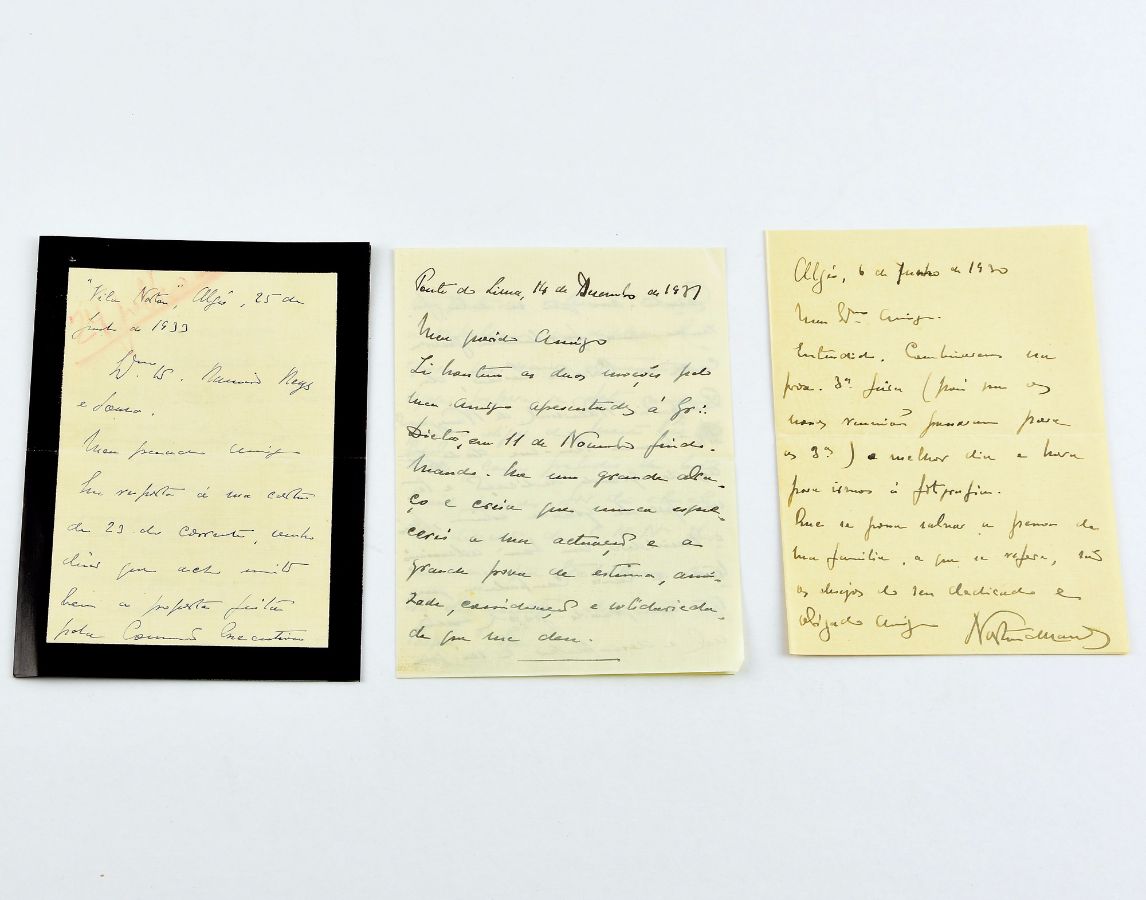 "Vila Norton", Algés, 25 de
Junho de 1933
Exmo Sr. Ramiro Neys
e Sousa.
Meu prezado amigo
Em resposta á sua carta
de 23 do corrente, tenho
dizer que acho muito
bem a proposta feita
pela Comissão Executiva
Ponte do Lima, 14 de Dezembro de 1931
Meu querido Amigo
Li hontem as duas moções pelo
meu Amigo apresentadas á Gr∴
Dieta, em 11 de Novembro findo.
Mando-lhe um grande abra-
ço e creia que nunca esque-
cerei a sua actuação e a
grande prova de estima, ami-
zade, consideração e solidarieda-
de que me deu.
Algés, 6 de Junho de 1930
Meu Exmo Amigo.
Entendido. Combinaremos na
prox. 3ª feira (pois que as
nossas reuniões passaram para
as 3as) o melhor dia e hora
para irmos á fotografia.
Que se possa salvar a pessoa de
sua familia, a que se refere, são
os desejos do seu dedicado e
obrigado amigo
Norton de Mattos